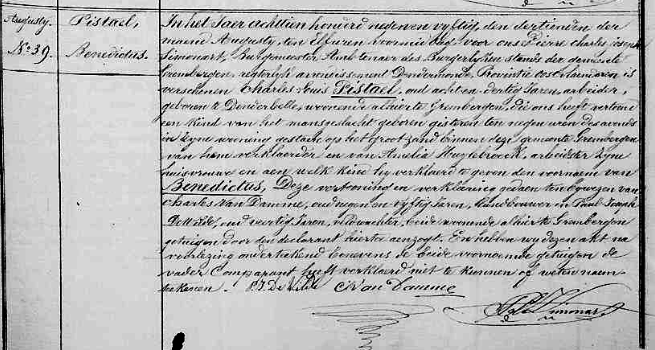 Augusty
N° 39.
Pistael,
Benedictus.
In het Jaer achttien honderd negen en vyftig, den dertienden der
maend Augusty, ten Elf uren voormiddag, voor ons Pierre Charles Joseph
Simonart, Burgemeester Ambtenaer des Burgerlyken stands der gemeente
Grembergen, regterlyk arrondissement Dendermonde, Provintie Oostvlaenderen is
verschenen Charles Louis Pistael, oud acht en dertig Jaren, arbeider,
geboren te Denderbelle, woonende alhier te Grembergen, die ons heeft vertoond
een kind van het mansgeslacht geboren gisteren ten negen uren des avonds
in zyne wooning gestaen op het Groot zand binnen deze gemeente Grembergen
van hem verklaerder en van Amelia Huylebroeck, arbeidster zyne
huisvrouw en aen welk kind hy verklaerd te geven den voornaem van
Benedictus, Deze vertooning en verklaering gedaen ten bywezen van
Charles Van Damme, oud negen en vyftig Jaren, Landbouwer en Paul Joseph
De Wilde, oud veertig Jaren, veldwachter, beide woonende alhier te Grembergen
getuigen door den declarant hiertoe aenzogt. En hebben wy dezen akt na
voorlezing onderteekend benevens de beide voornoemde getuigen de
vader Comparant heeft verklaerd niet te kunnen of weten naem-
teekenen. P J De Wilde C Van Damme
P. C. Simonart